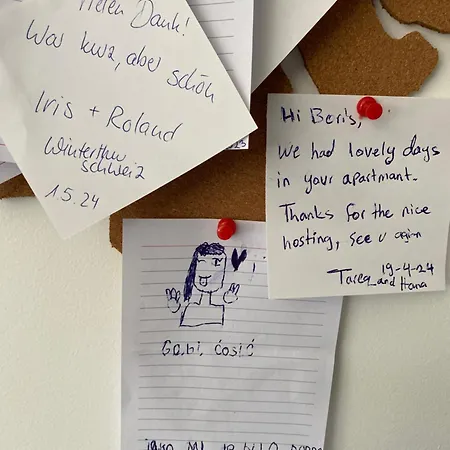 Vielen Dank!
War kurz, aber schön
Iris + Roland
Winterthur
Schweiz
1.5.24
Hi Boris,
We had lovely days
in your apartment.
Thanks for the nice
hosting, see u again
19-4-24
Tareq and Hana
Gabi, ćosić